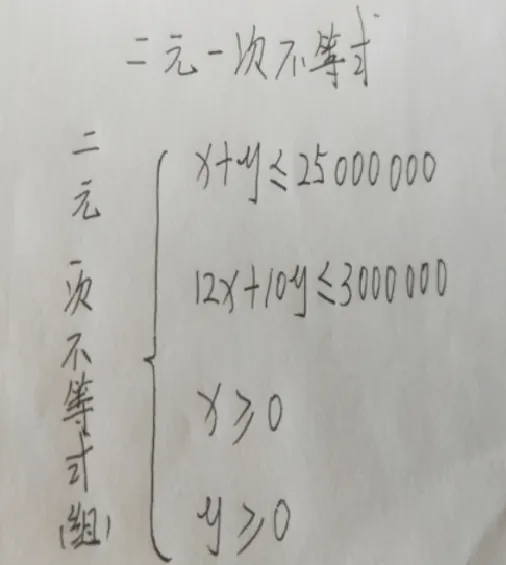 二元一次不等式
二元一次不等式(组)
x+y≤25000000
12x+10y≤3000000
x≥0
y≥0